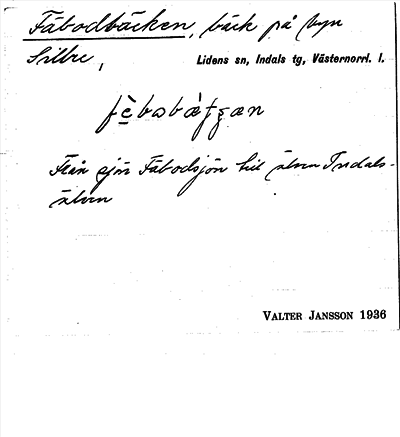 Fäbodbäcken, bäck på byn
Sillre,
Lidens sn, Indals tg, Västernorrl. l.
Från sjön Fäbodsjön till älven Indals-
älven
VALTER JANSSON 1936